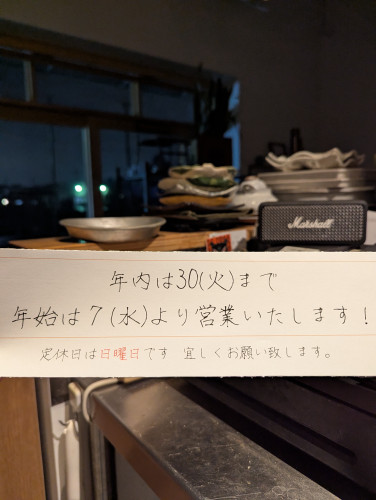 Marshall
年内は30(火)まで
年始は7(水)より営業いたします!
定休日は日曜日です 宜しくお願い致します。